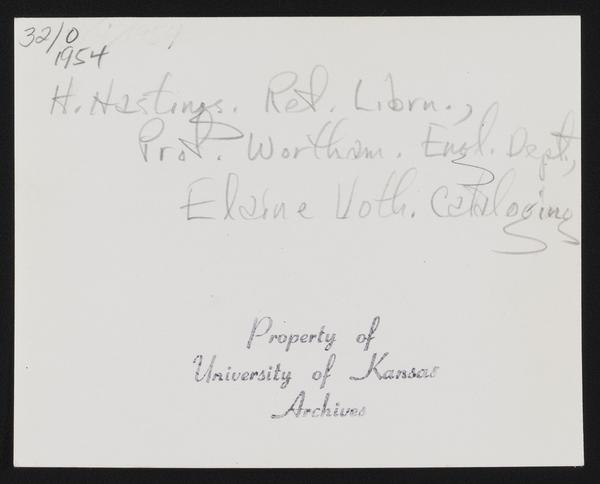 32/0
1954
H. Hastings. Ref. Librn.,
Prof. Wortham. Engl. Dept.,
Elaine Voth. Cataloging
Property of
University of Kansas
Archives